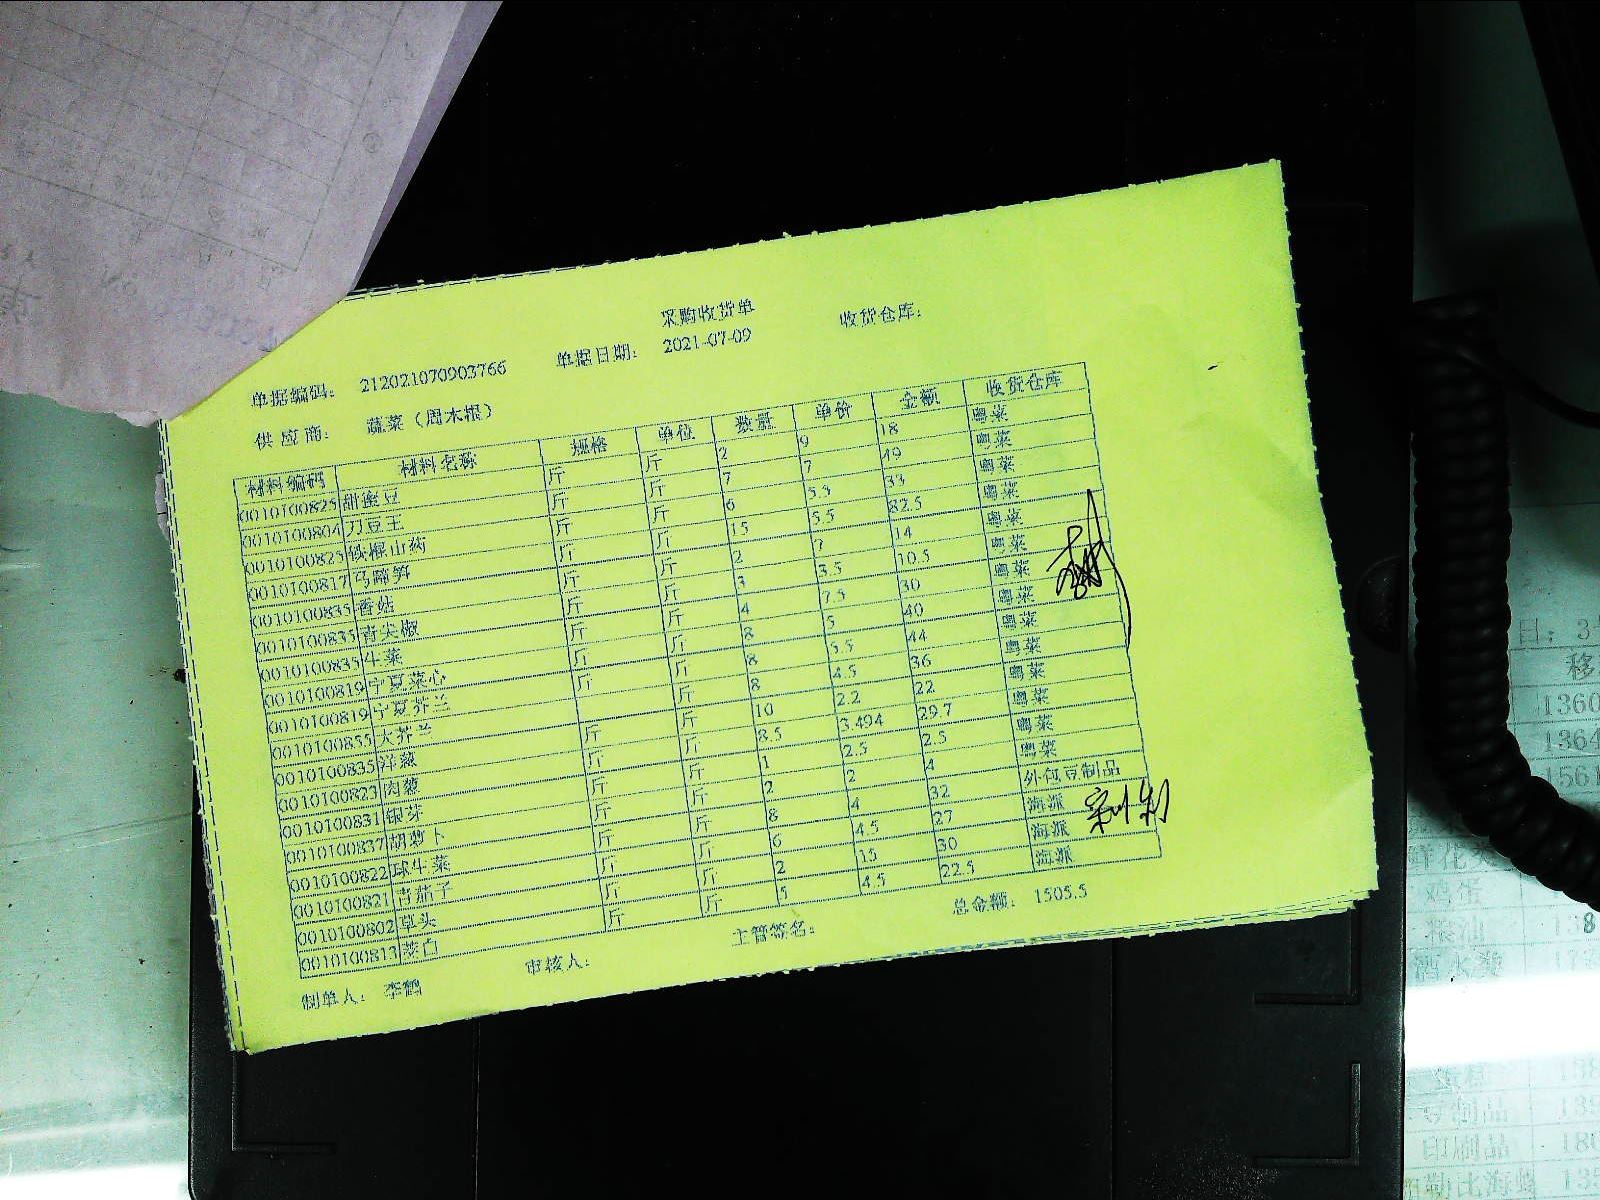 采购收货单
单据编码： 212021070903766 单据日期： 2021-07-09 收货仓库：
供应商： 蔬菜（周木根）
材料编码 材料名称 规格 单位 数量 单价 金额 收货仓库
0010100825 甜蜜豆 斤 斤 2 9 18 粤菜
0010100804 刀豆王 斤 斤 7 7 49 粤菜
0010100825 铁棍山药 斤 斤 6 5.5 33 粤菜
0010100817 马蹄笋 斤 斤 15 5.5 82.5 粤菜
0010100835 香菇 斤 斤 2 7 14 粤菜
0010100835 青尖椒 斤 斤 3 3.5 10.5 粤菜
0010100835 生菜 斤 斤 4 7.5 30 粤菜
0010100819 宁夏菜心 斤 斤 8 5 40 粤菜
0010100819 宁夏芥兰 斤 斤 8 5.5 44 粤菜
0010100855 大芥兰 斤 8 4.5 36 粤菜
0010100835 洋葱 斤 斤 10 2.2 22 粤菜
0010100823 肉葱 斤 斤 8.5 3.494 29.7 粤菜
0010100831 银芽 斤 斤 1 2.5 2.5 粤菜
0010100837 胡萝卜 斤 斤 2 2 4 粤菜
0010100822 球生菜 斤 斤 8 4 32 外包豆制品
0010100821 青茄子 斤 斤 6 4.5 27 海派
0010100802 草头 斤 斤 2 15 30 海派
0010100813 茭白 斤 斤 5 4.5 22.5 海派
制单人： 李鹤 审核人： 主管签名： 总金额： 1505.5
移
1360
1364
1561
鸡蛋
粮油
酒水费
豆制品
印刷品